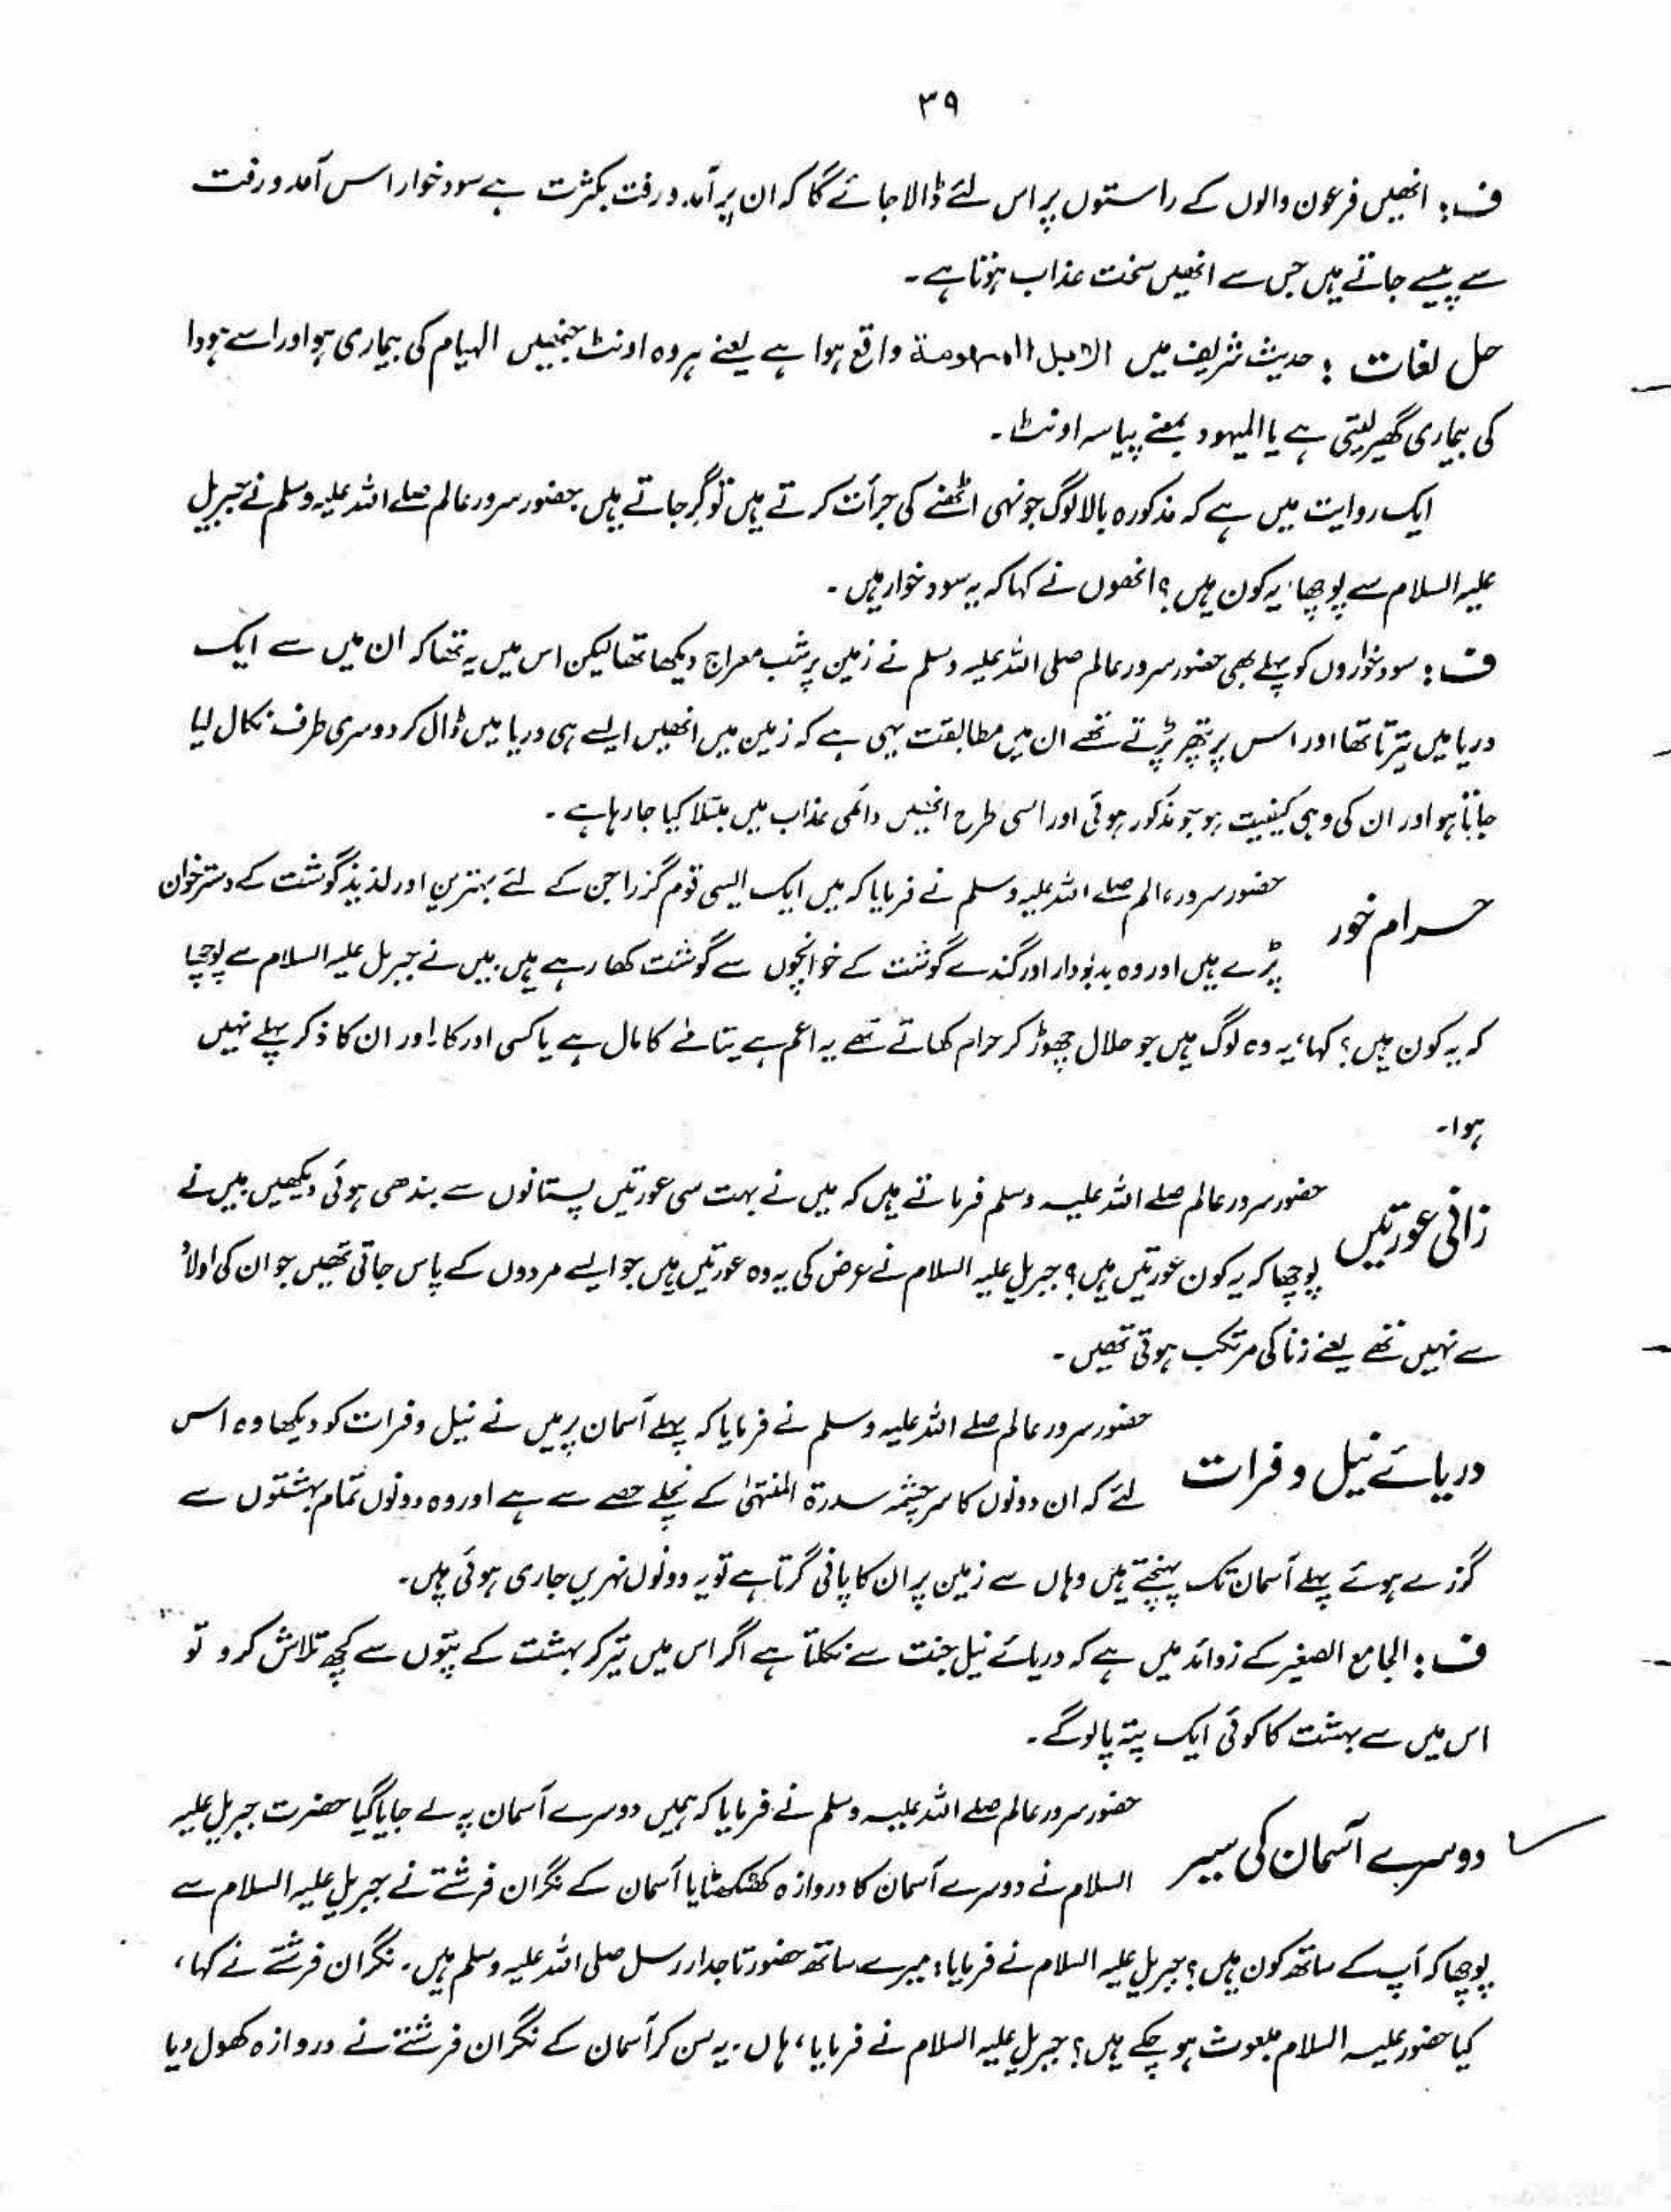 ۳۹
ف : انھیں فرعون والوں کے راستوں پر اس لئے ڈالا جائے گا کہ ان پر آمد و رفت بکثرت ہے سود خوار اس آمد و رفت
سے پیسے جاتے ہیں جس سے انھیں سخت عذاب ہوتا ہے۔
حل لغات : حدیث شریف میں الابل المہومة واقع ہوا ہے یعنے ہر وہ اونٹ جنھیں الہیام کی بیماری ہو اور اسے ہودا
کی بیماری گھیر لیتی ہے یا المیہود بمعنے پیاسہ اونٹ۔
ایک روایت میں ہے کہ مذکورہ بالا لوگ جونہی اٹھنے کی جرأت کرتے ہیں تو گر جاتے ہیں حضور سرور عالم صلے اللہ علیہ وسلم نے جبریل
علیہ السلام سے پوچھا یہ کون ہیں؟ انھوں نے کہا کہ یہ سود خوار ہیں۔
ف : سود خواروں کو پہلے بھی حضور سرور عالم صلی اللہ علیہ وسلم نے زمین پر شب معراج دیکھا تھا لیکن اس میں یہ تھا کہ ان میں سے ایک
دریا میں تیرتا تھا اور اس پر پتھر پڑتے تھے ان میں مطابقت یہی ہے کہ زمین میں انھیں ایسے ہی دریا میں ڈال کر دوسری طرف نکال لیا
جاتا ہو اور ان کی وہی کیفیت ہو جو مذکور ہوئی اور اسی طرح انھیں دائمی عذاب میں مبتلا کیا جا رہا ہے۔
حرام خور
حضور سرور عالم صلے اللہ علیہ وسلم نے فرمایا کہ میں ایک ایسی قوم گزرا جن کے لئے بہترین اور لذیذ گوشت کے دسترخوان
پڑے ہیں اور وہ بدبودار اور گندے گوشت کے خوانچوں سے گوشت کھا رہے ہیں میں نے جبریل علیہ السلام سے پوچھا
کہ یہ کون ہیں؟ کہا، یہ وہ لوگ ہیں جو حلال چھوڑ کر حرام کھاتے تھے یہ اعم ہے یتامٰے کا مال ہے یا کسی اور کا، اور ان کا ذکر پہلے نہیں
ہوا۔
زانی عورتیں
حضور سرور عالم صلے اللہ علیہ وسلم فرماتے ہیں کہ میں نے بہت سی عورتیں پستانوں سے بندھی ہوئی دیکھیں میں نے
پوچھا کہ یہ کون عورتیں ہیں؟ جبریل علیہ السلام نے عرض کی یہ وہ عورتیں ہیں جو ایسے مردوں کے پاس جاتی تھیں جو ان کی اولاد
سے نہیں تھے یعنے زنا کی مرتکب ہوتی تھیں۔
دریائے نیل و فرات
حضور سرور عالم صلے اللہ علیہ وسلم نے فرمایا کہ پہلے آسمان پر میں نے نیل و فرات کو دیکھا وہ اس
لئے کہ ان دونوں کا سرچشمہ سدرۃ المنتہیٰ کے نچلے حصے سے ہے اور وہ دونوں تمام بہشتوں سے
گزرے ہوئے پہلے آسمان تک پہنچتے ہیں وہاں سے زمین پر ان کا پانی گرتا ہے تو یہ دونوں نہریں جاری ہوئی ہیں۔
ف : الجامع الصغیر کے زوائد میں ہے کہ دریائے نیل جنت سے نکلتا ہے اگر اس میں تیر کر بہشت کے پتوں سے کچھ تلاش کرو تو
اس میں سے بہشت کا کوئی ایک پتہ پالوگے۔
دوسرے آسمان کی سیر
حضور سرور عالم صلے اللہ علیہ وسلم نے فرمایا کہ ہمیں دوسرے آسمان پہ لے جایا گیا حضرت جبریل علیہ
السلام نے دوسرے آسمان کا دروازہ کھٹکھٹایا آسمان کے نگران فرشتے نے جبریل علیہ السلام سے
پوچھا کہ آپ کے ساتھ کون ہیں؟ جبریل علیہ السلام نے فرمایا : میرے ساتھ حضور تاجدار رسل صلی اللہ علیہ وسلم ہیں۔ نگران فرشتے نے کہا،
کیا حضور علیہ السلام مبعوث ہو چکے ہیں؟ جبریل علیہ السلام نے فرمایا، ہاں۔ یہ سن کر آسمان کے نگران فرشتے نے دروازہ کھول دیا